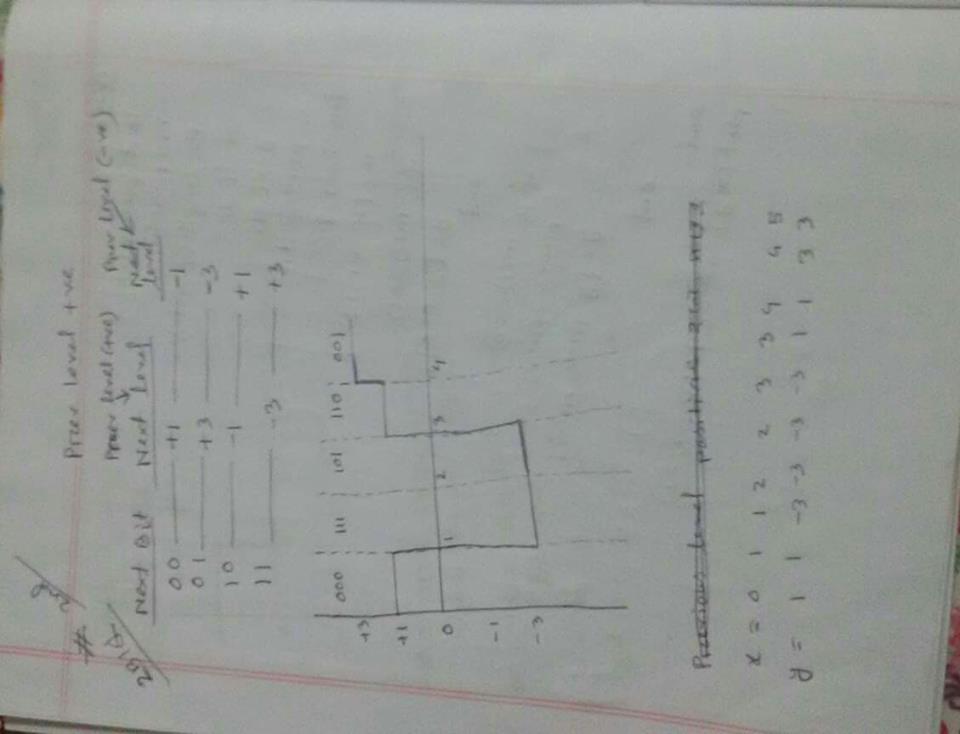 # 2nd
2B1Q
Prev level +ve
Prev level (+ve) Prev level (-ve)
Next Bit Next Level Next Level
00 +1 -1
01 +3 -3
10 -1 +1
11 -3 +3
000 111 101 110 001
+3
+1
0 1 2 3 4
-1
-3
x = 0 1 1 2 2 3 3 4 4 5
y = 1 1 -3 -3 -3 -3 1 1 3 3